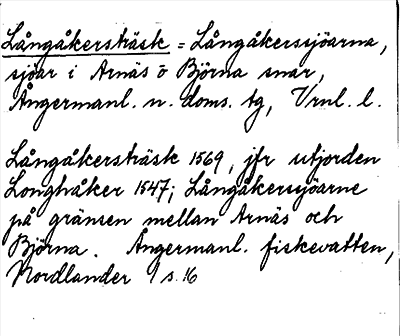 Långåkersträsk = Långåkerssjöarna,
sjöar i Arnäs o Björna snar,
Ångermanl. n. doms. tg, Vrnl. l.
Långåkersträsk 1569, jfr utjorden
Longhåker 1547; Långåkerssjöarne
på gränsen mellan Arnäs och
Björna. Ångermanl. fiskevatten,
Nordlander 1 s. 16